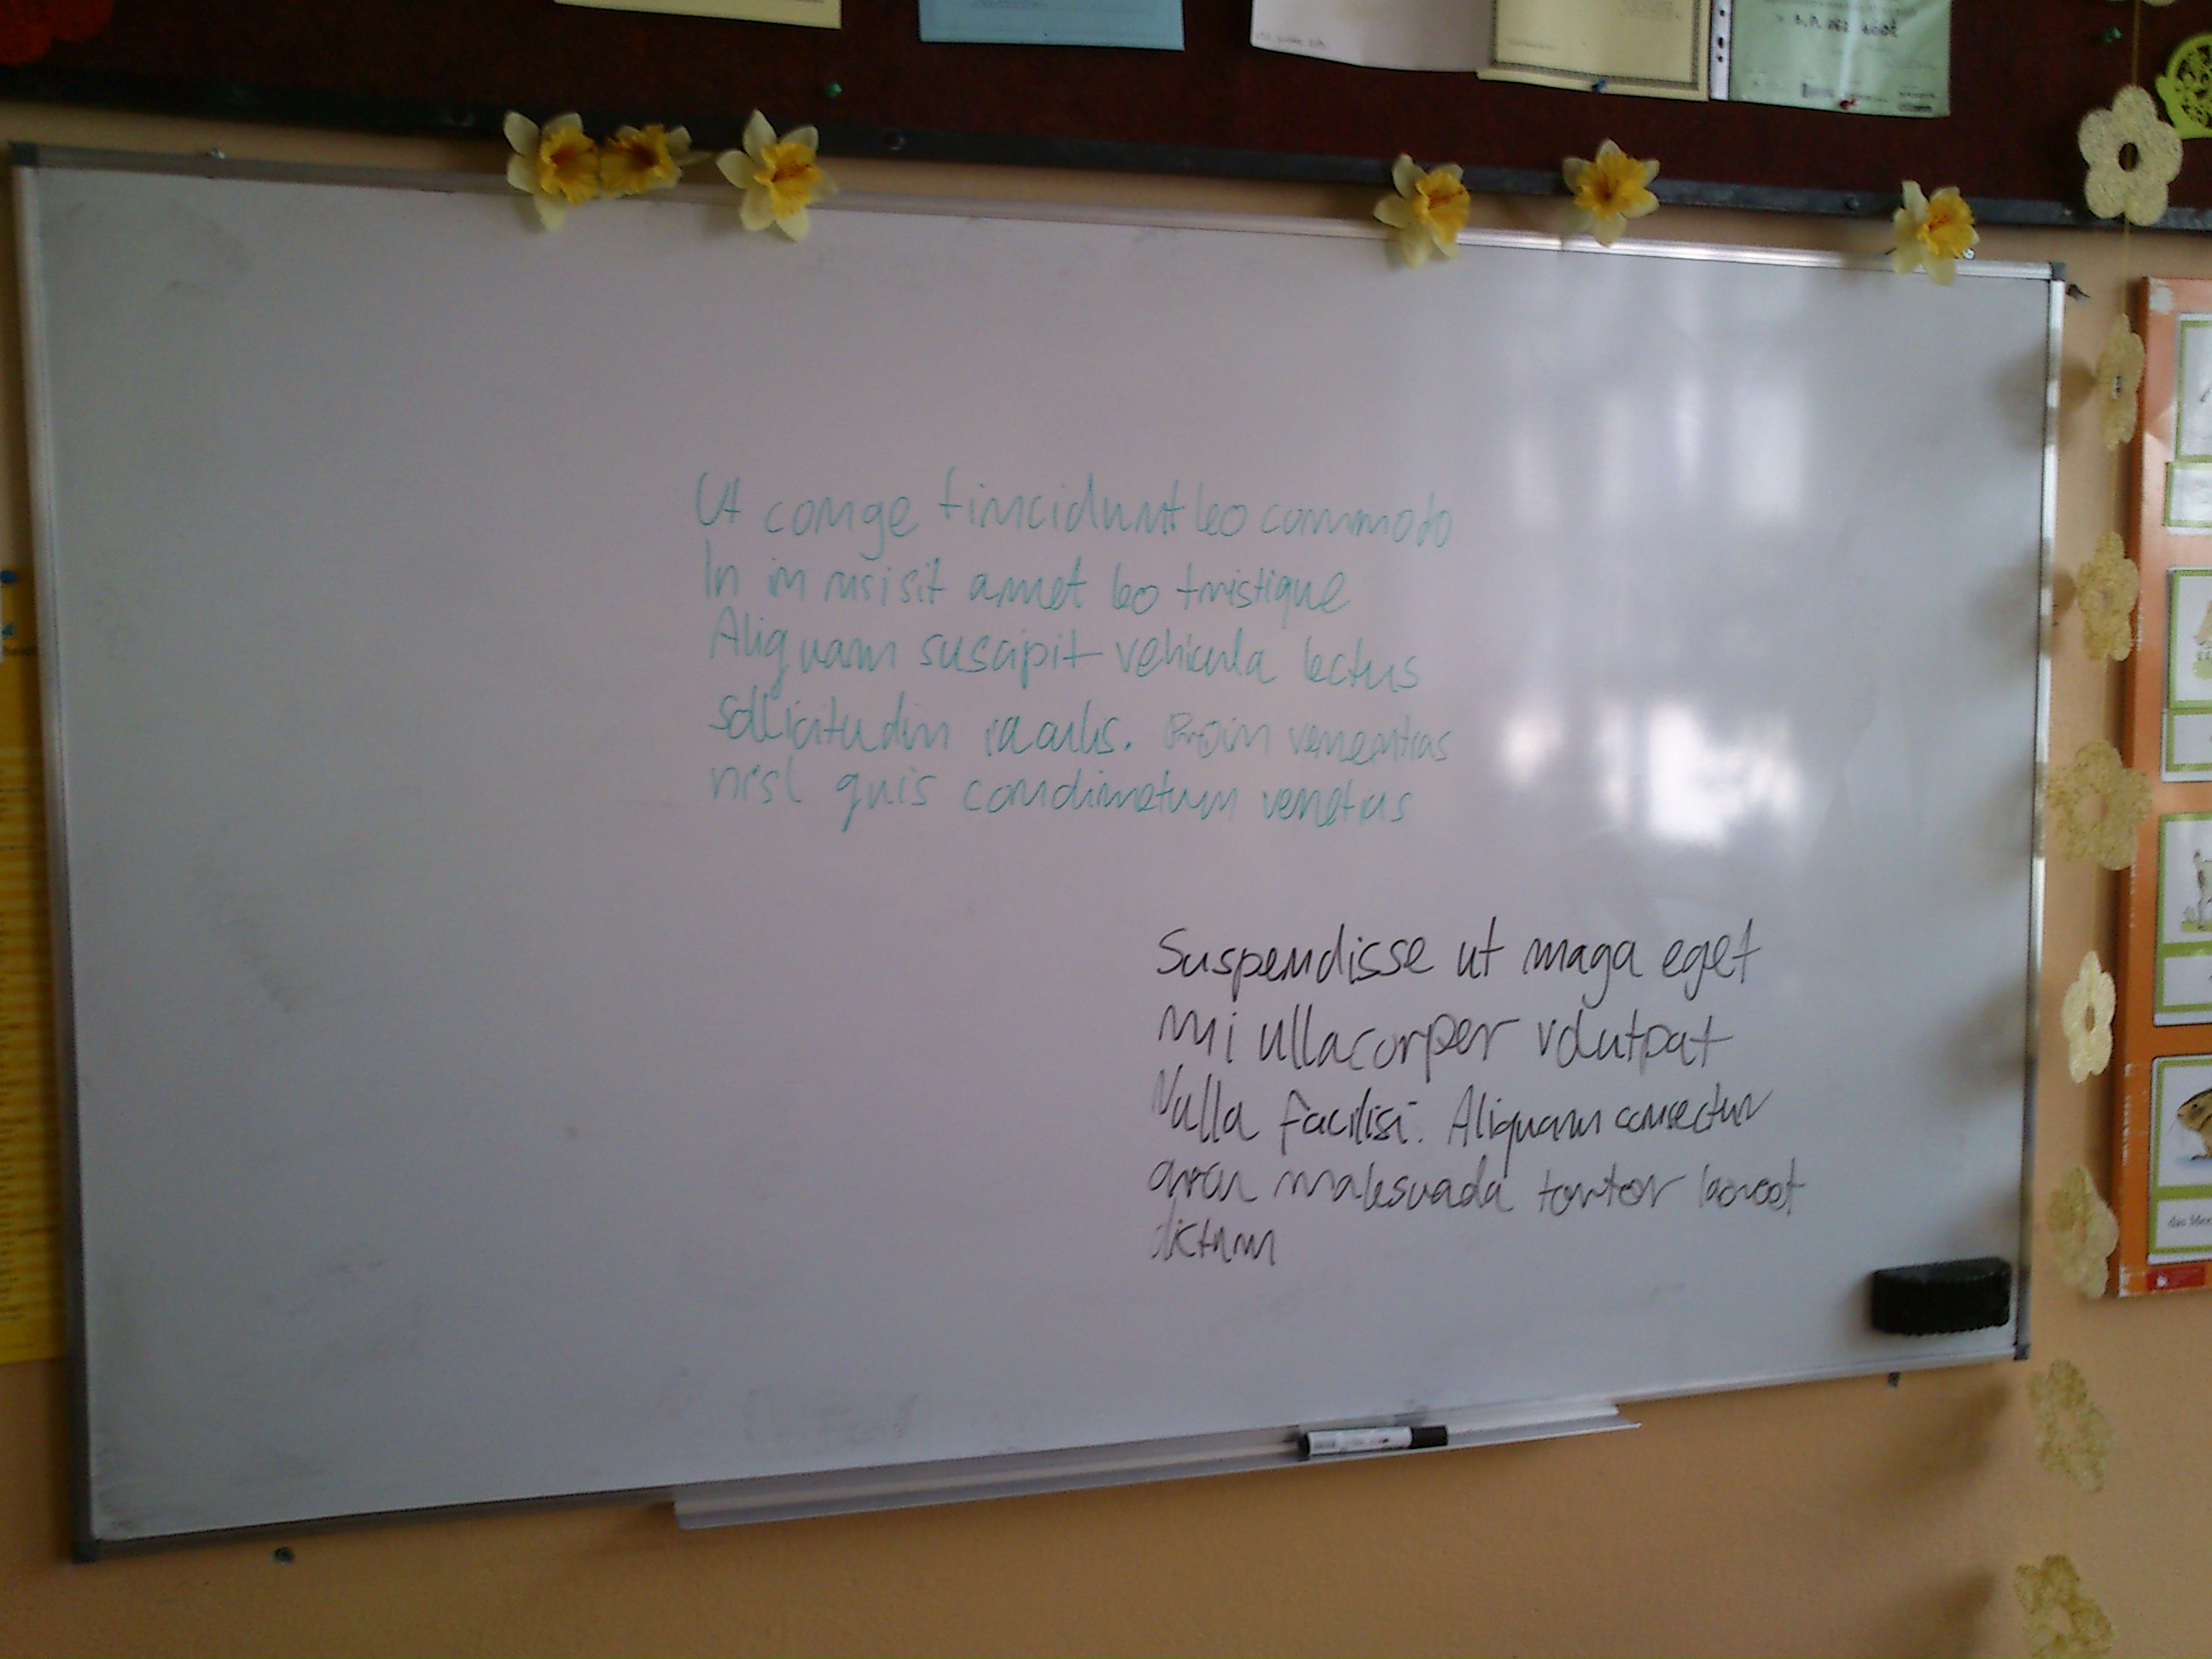 Ut conge tincidunt leo commodo
In in nisi sit amet leo tristique
Aliquam suscipit vehicula lectus
sollicitudin iaculis. Proin
nisl quis condimetum
Suspendisse ut maga eget
mi ullacorper volutpat
Nulla facilisi. Aliquam consectur
arcu malesuada tortor laoreet
dictum